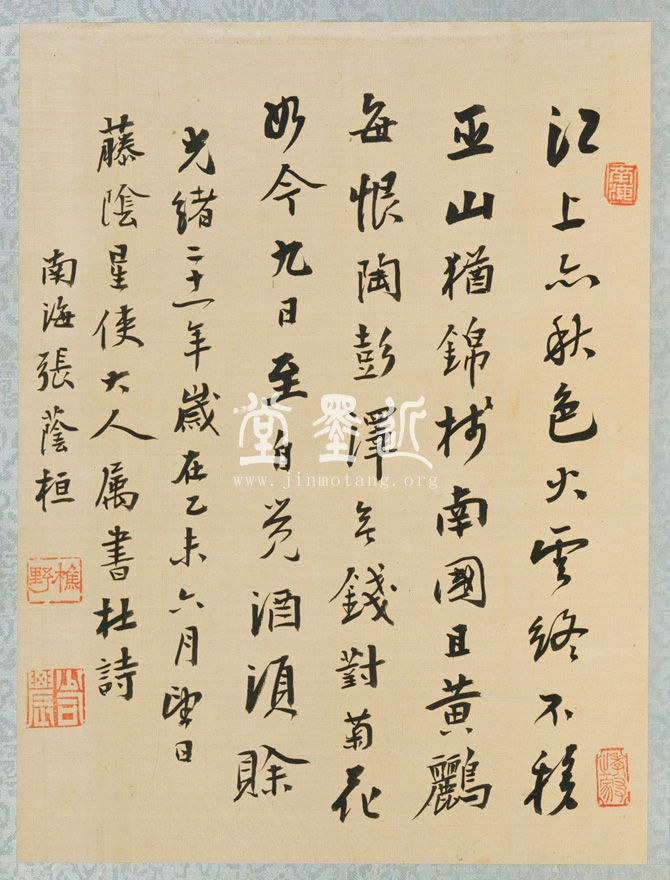 江上亦秋色火雲終不移
巫山猶錦樹南國且黃鸝
每恨陶彭澤无錢對菊花
如今九日至自覺酒須賒
光緒二十一年歲在乙未六月望日
藤陰星使大人属書杜詩
南海張蔭桓
樵野
近墨堂
www.jinmotang.org